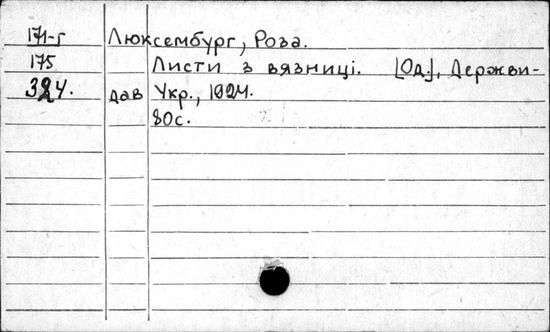 171-г Люксембург, Роза.
175 Листи з вязниці. [Од.], Держви-
324. дав Укр., 1924.
80с.